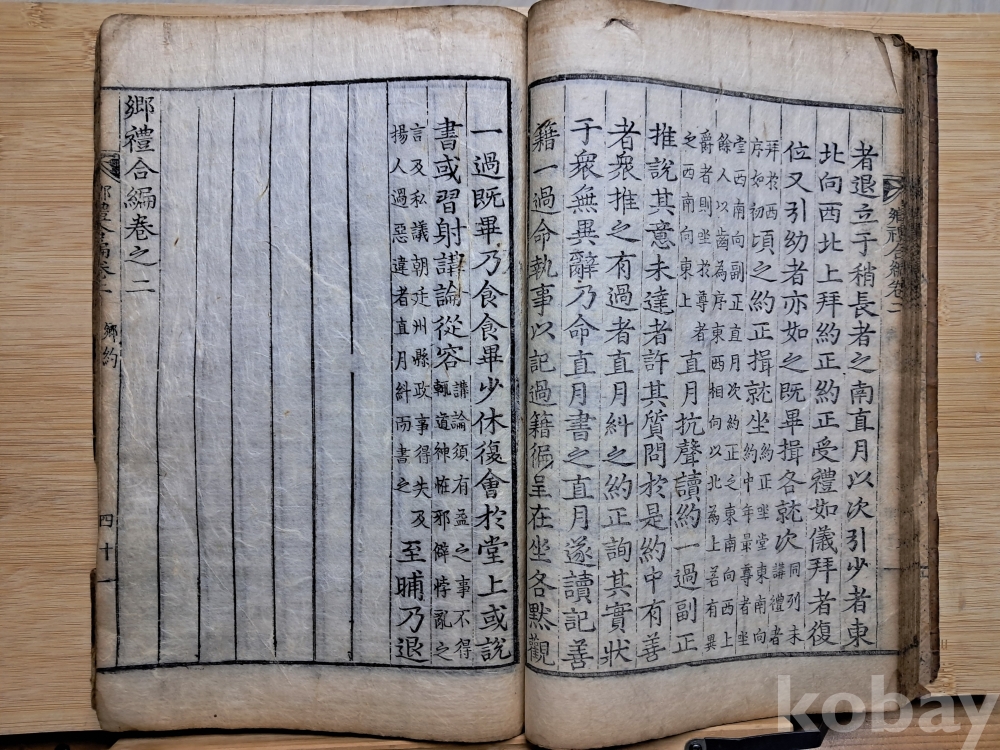 鄉禮合編卷
者退立于稍長者之南直月以次引少者東
北向西北上拜約正約正受禮如儀拜者復
位又引幼者亦如之既畢揖各就次同列未講禮者
拜於西序如初頃之約正揖就坐約正坐堂東南向約中年最尊者坐
堂西南向副正直月次約正之東南向西上餘人以齒為序東西相向以北為上若有異
爵者則坐於尊者之西南向東上直月抗聲讀約一過副正
推說其意未達者許其質問於是約中有善
者衆推之有過者直月糾之約正詢其實狀
于衆無異辭乃命直月書之直月遂讀記善
籍一過命執事以記過籍徧呈在坐各默觀
一過既畢乃食食畢少休復會於堂上或說
書或習射講論從容講論須有益之事不得輒道神恠邪僻悖亂之
言及私議朝廷州縣政事得失及揚人過惡違者直月糾而書之至晡乃退
鄉禮合編卷之二
鄉禮合編卷二 鄉約 四十一
kobay